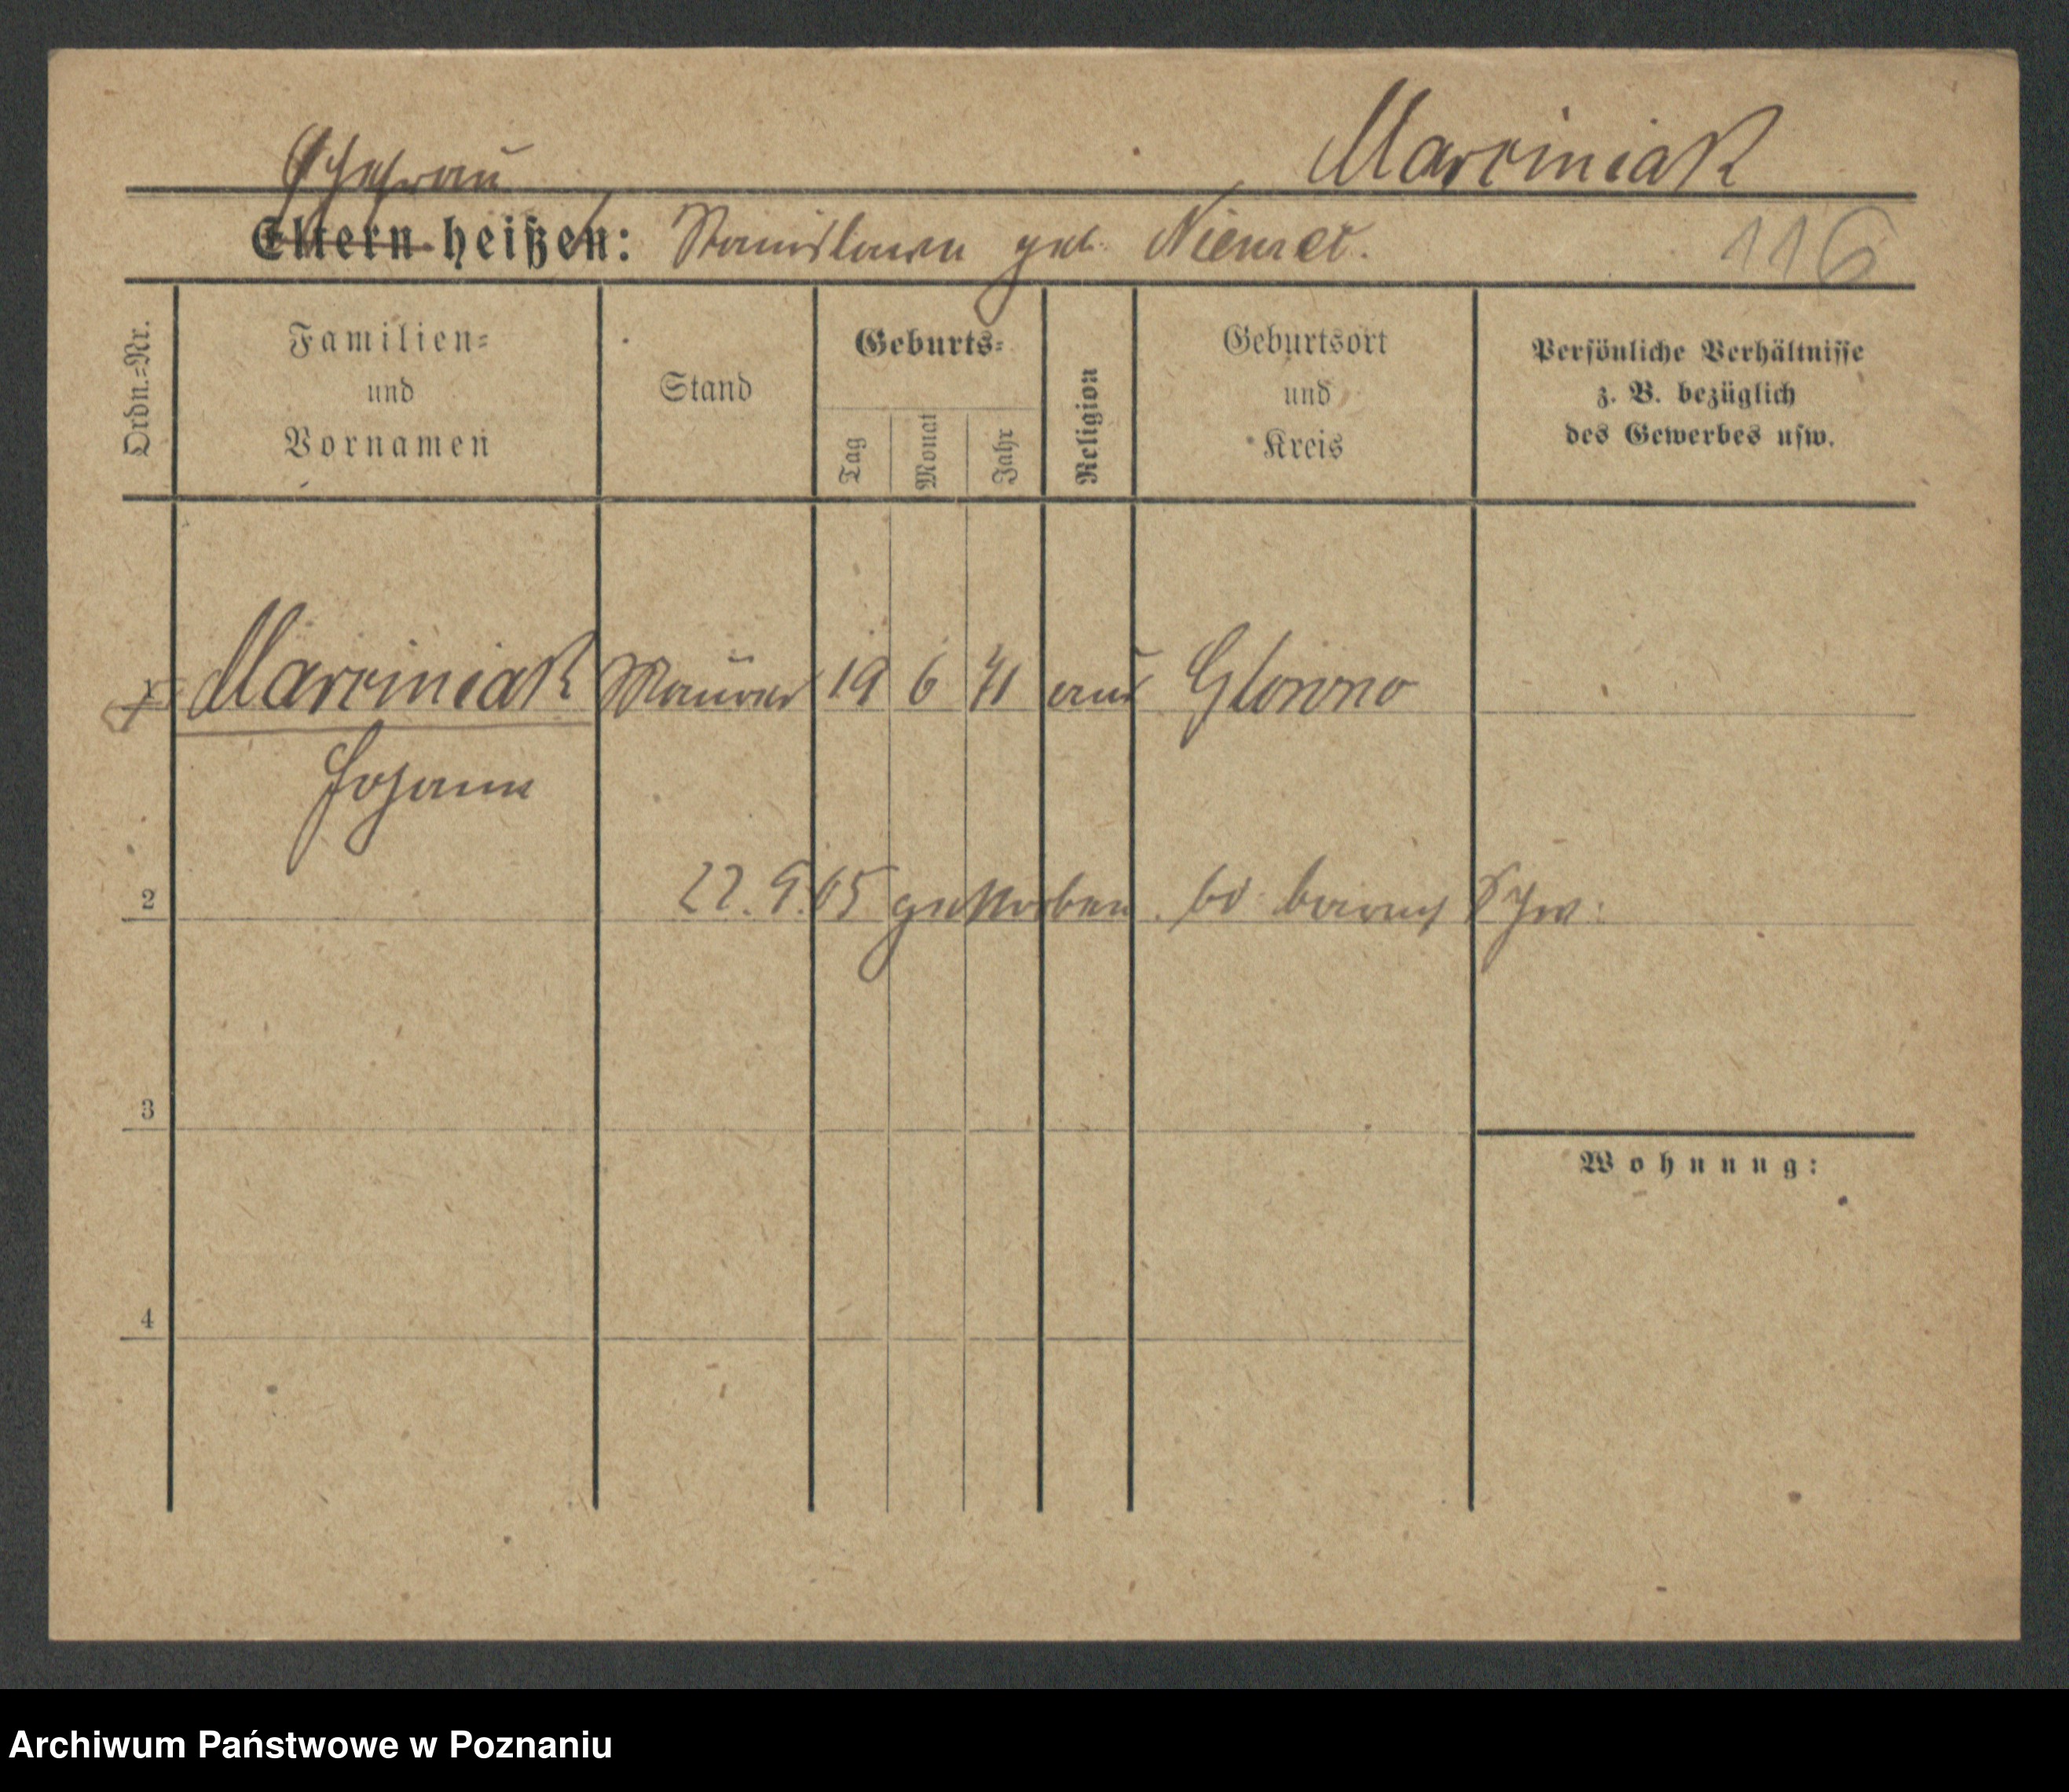 Ehefrau Marciniak
Eltern heißen: Stanislawa geb. 116
Ordn.-Nr.
Familien-
und
Vornamen
Stand
Geburts-
Tag
Monat
Jahr
Religion
Geburtsort
und
Kreis
Persönliche Verhältnisse
z. B. bezüglich
des Gewerbes usw.
Marciniak Maurer 19 6 71 aus
Johann
2 22.9.05 gestorben
3
Wohnung:
4
Archiwum Państwowe w Poznaniu